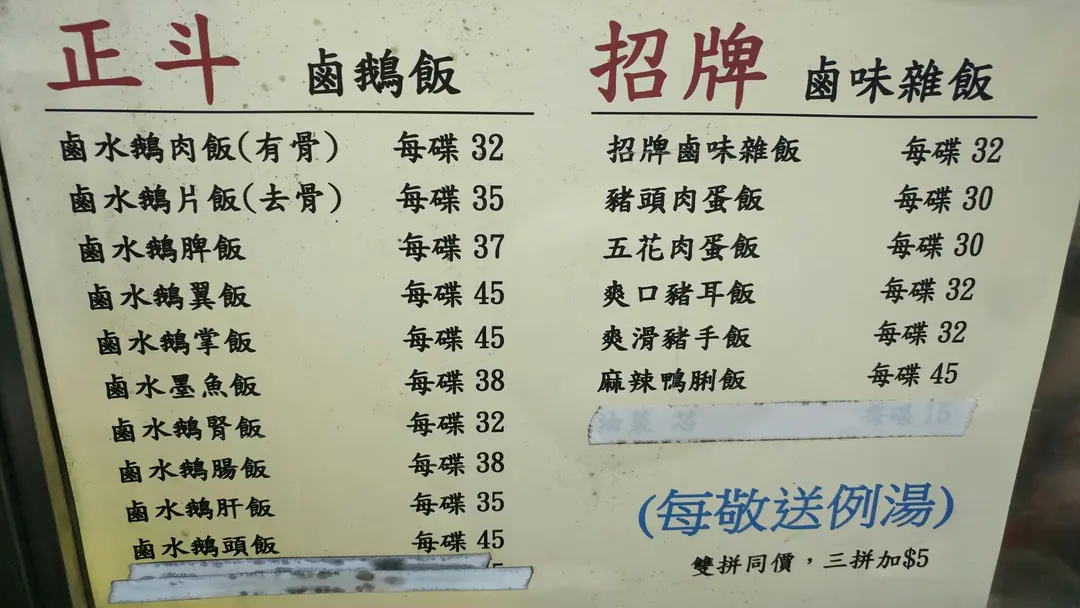 正斗 鹵鵝飯
鹵水鵝肉飯(有骨) 每碟 32
鹵水鵝片飯(去骨) 每碟 35
鹵水鵝脾飯 每碟 37
鹵水鵝翼飯 每碟 45
鹵水鵝掌飯 每碟 45
鹵水墨魚飯 每碟 38
鹵水鵝腎飯 每碟 32
鹵水鵝腸飯 每碟 38
鹵水鵝肝飯 每碟 35
鹵水鵝頭飯 每碟 45
招牌 鹵味雜飯
招牌鹵味雜飯 每碟 32
豬頭肉蛋飯 每碟 30
五花肉蛋飯 每碟 30
爽口豬耳飯 每碟 32
爽滑豬手飯 每碟 32
麻辣鴨脷飯 每碟 45
油菜芯 每碟 15
(每敬送例湯)
雙拼同價，三拼加$5